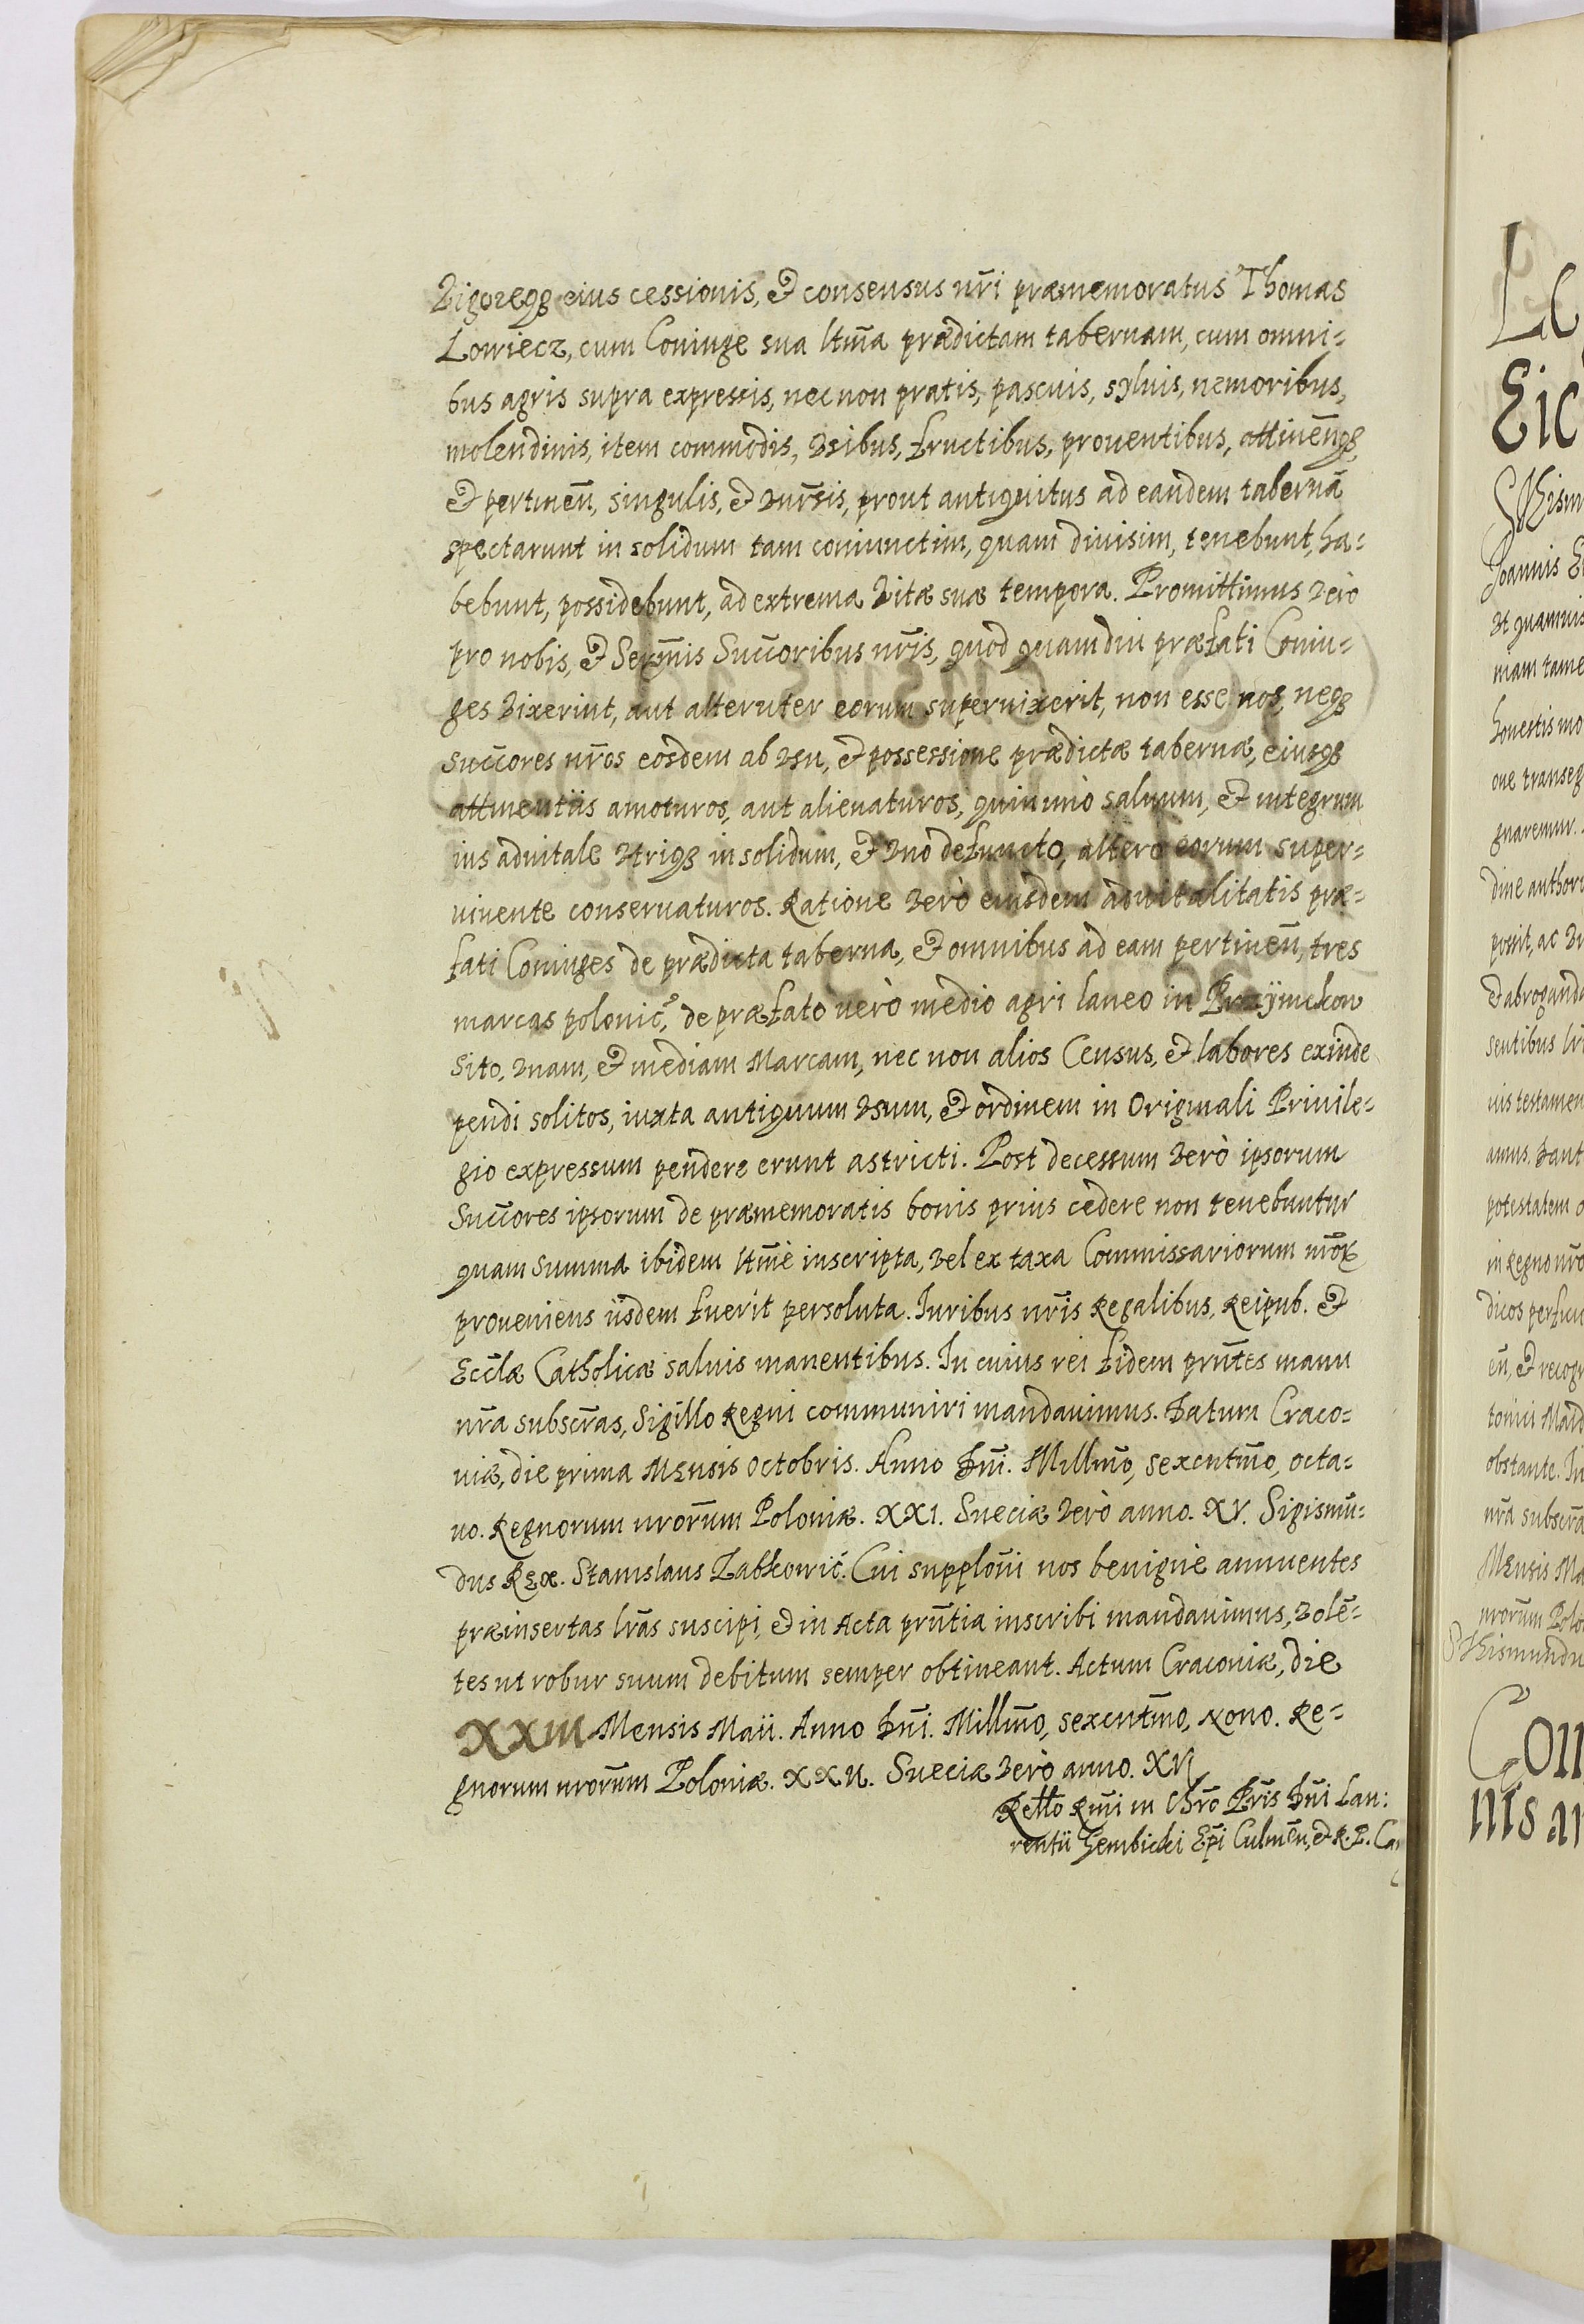 Vigoreq(ue) eius cessionis, & consensus nr̃i præmemoratus Thomas
Lowiecz, cum Coniuge sua ltm̃a prædictam tabernam, cum omni-
bus agris supra expressis, nec non pratis, pascuis, syluis, nemoribus,
molendinis, item commodis, vsibus, fructibus, prouentibus, attinen̄q(ue),
& pertinen̄, singulis, & vnr̃sis, prout antiquitus ad eandem tabernā
spectarunt in solidum tam coniunctim, quam diuisim, tenebunt, ha-
bebunt, possidebunt, ad extrema vitæ suæ tempora. Promittimus verò
pro nobis, & Serm̃is Succ̃oribus nr̃is, quod quamdiu præfati Coniu-
ges vixerint, aut alteruter eorum superuixerit, non esse nos, neq(ue)
succ̃ores nr̃os eosdem ab vsu, & possessione prædictæ tabernæ, eiusq(ue)
attinentiis amoturos, aut alienaturos, quinimò saluum, & integrum
ius aduitale vtriq(ue) in solidum, & vno defuncto, altero eorum super-
uiuente conseruaturos. Ratione verò eiusdem aduitalitatis præ-
fati Coniuges de prædicta taberna, & omnibus ad eam pertinen̄, tres
marcas polonic̃, de præfato uerò medio agri laneo in Przÿmekow
sito, vnam, & mediam Marcam, nec non alios Census, & labores exinde
pendi solitos, iuxta antiquum vsum, & ordinem in Originali Priuile-
gio expressum pendere erunt astricti. Post decessum verò ipsorum
Succ̃ores ipsorum de præmemoratis bonis prius cedere non tenebuntur
quam summa ibidem ltm̃è inscripta, vel ex taxa Commissariorum nr̃oꝝ
proueniens iisdem fuerit persoluta. Iuribus nr̃is Regalibus, Reipub. &
Eccl̃æ Catholicæ saluis manentibus. In cuius rei fidem prn̄tes manu
nr̃a subscr̃as, Sigillo Regni communiri mandauimus. Datum Craco-
uiæ, die prima Mensis Octobris. Anno Dn̄i. Millm̃o, sexcntm̃o, octa-
uo. Regnorum nror̃um Poloniæ. XXI. Sueciæ verò anno. XV. Sigismū-
dus Rex. Stanislaus Zabkowic̃. Cui supplõni nos benignè annuentes
præinsertas lr̃as suscipi, & in Acta prn̄tia inscribi mandauimus, volē-
tes ut robur suum debitum semper obtineant. Actum Cracouiæ, die
XXIII Mensis Maii. Anno Dn̄i. Millm̃o, sexcntm̃o, Nono. Re-
gnorum nror̃um Poloniæ. XXII. Sueciæ verò anno. XVI
Rello Rm̃i in Chr̃o Pr̃is Dn̄i Lau:
rentii Gembicki Ep̃i Culmēn, & R. P. Ca